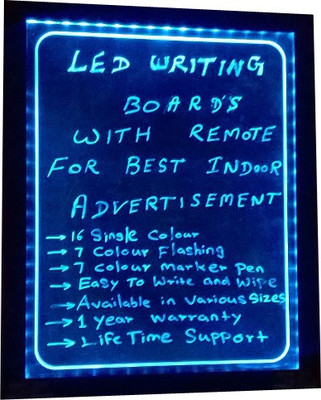 LED WRITING
BOARD'S
WITH REMOTE
FOR BEST INDOOR
ADVERTISEMENT
→ 16 Single Colour
→ 7 Colour Flashing
→ 7 Colour Marker Pen
→ Easy To Write and Wipe
→ Available in Various Sizes
→ 1 Year Warranty
→ Life Time Support